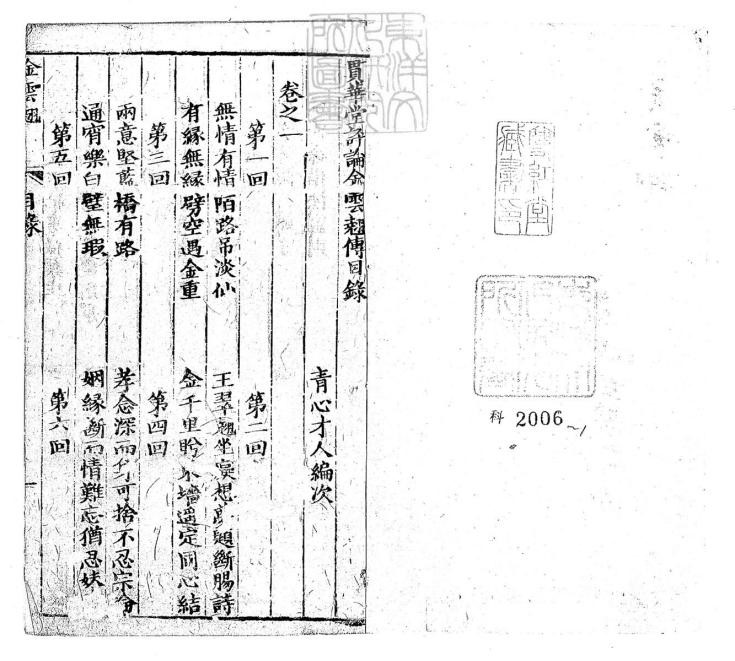 雙紅堂
藏書印
科 2006~1
貫華堂評論金雲翹傳目錄
青心才人編次
卷之一
第一回 第二回
無情有情陌路吊淡仙 王翠翹坐想夢題斷腸詩
有緣無緣劈空遇金重 金千里盻東墻遥定同心結
第三回 第四回
兩意堅藍橋有路 孝念深而身可捨不忍宗
通宵樂白璧無瑕 姻緣斷而情難忘猶思妹
第五回 第六回
金雲翹 目錄